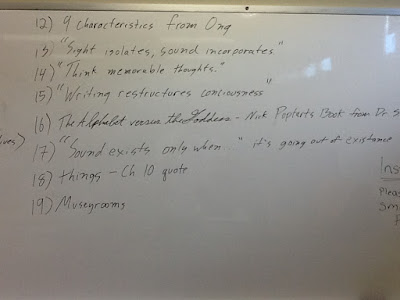 12) 9 characteristics from Ong
13) "Sight isolates, sound incorporates."
14) "Think memorable thoughts."
15) "Writing restructures conciousness"
16) The Alphabet versus the Goddess - Nick Poptarts Book from Dr S
ives) 17) "Sound exists only when..." it's going out of existance
18) things - Ch 10 quote
19) Museyrooms
Ins
Pleas
Sm